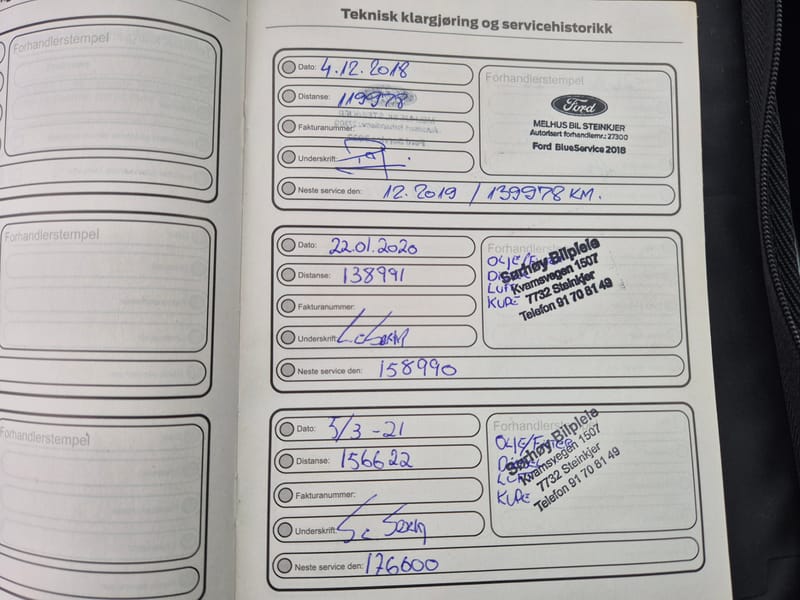 Teknisk klargjøring og servicehistorikk
Forhandlerstempel
Forhandlerstempel
Forhandlerstempel
Dato: 4.12.2018
Distanse: 119978
Fakturanummer:
Underskrift:
Neste service den: 12.2019 / 139978 KM.
Forhandlerstempel
Ford
MELHUS BIL STEINKJER
Autorisert forhandlernr.: 27300
Ford BlueService 2018
Dato: 22.01.2020
Distanse: 138991
Fakturanummer:
Underskrift:
Neste service den: 158990
Forhandlerstempel
Olje/Filter
Luft
Kupe
Sørhøy Bilpleie
Kvamsvegen 1507
7732 Steinkjer
Telefon 91 70 81 49
Dato: 5/3-21
Distanse: 156622
Fakturanummer:
Underskrift:
Neste service den: 176600
Forhandlerstempel
Olje/Filter
Diesel
Luft
Kupe
Sørhøy Bilpleie
Kvamsvegen 1507
7732 Steinkjer
Telefon 91 70 81 49